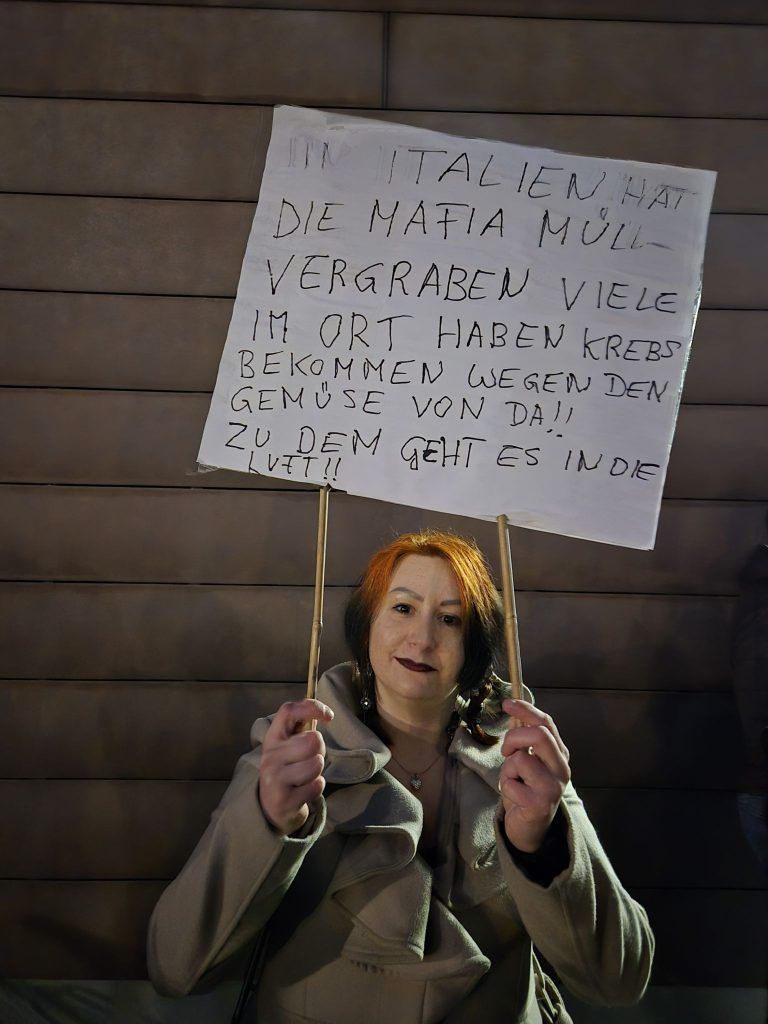 IN ITALIEN HAT
DIE MAFIA MÜLL
VERGRABEN VIELE
IM ORT HABEN KREBS
BEKOMMEN WEGEN DEN
GEMÜSE VON DA!!
ZU DEM GEHT ES IN DIE
LUFT!!